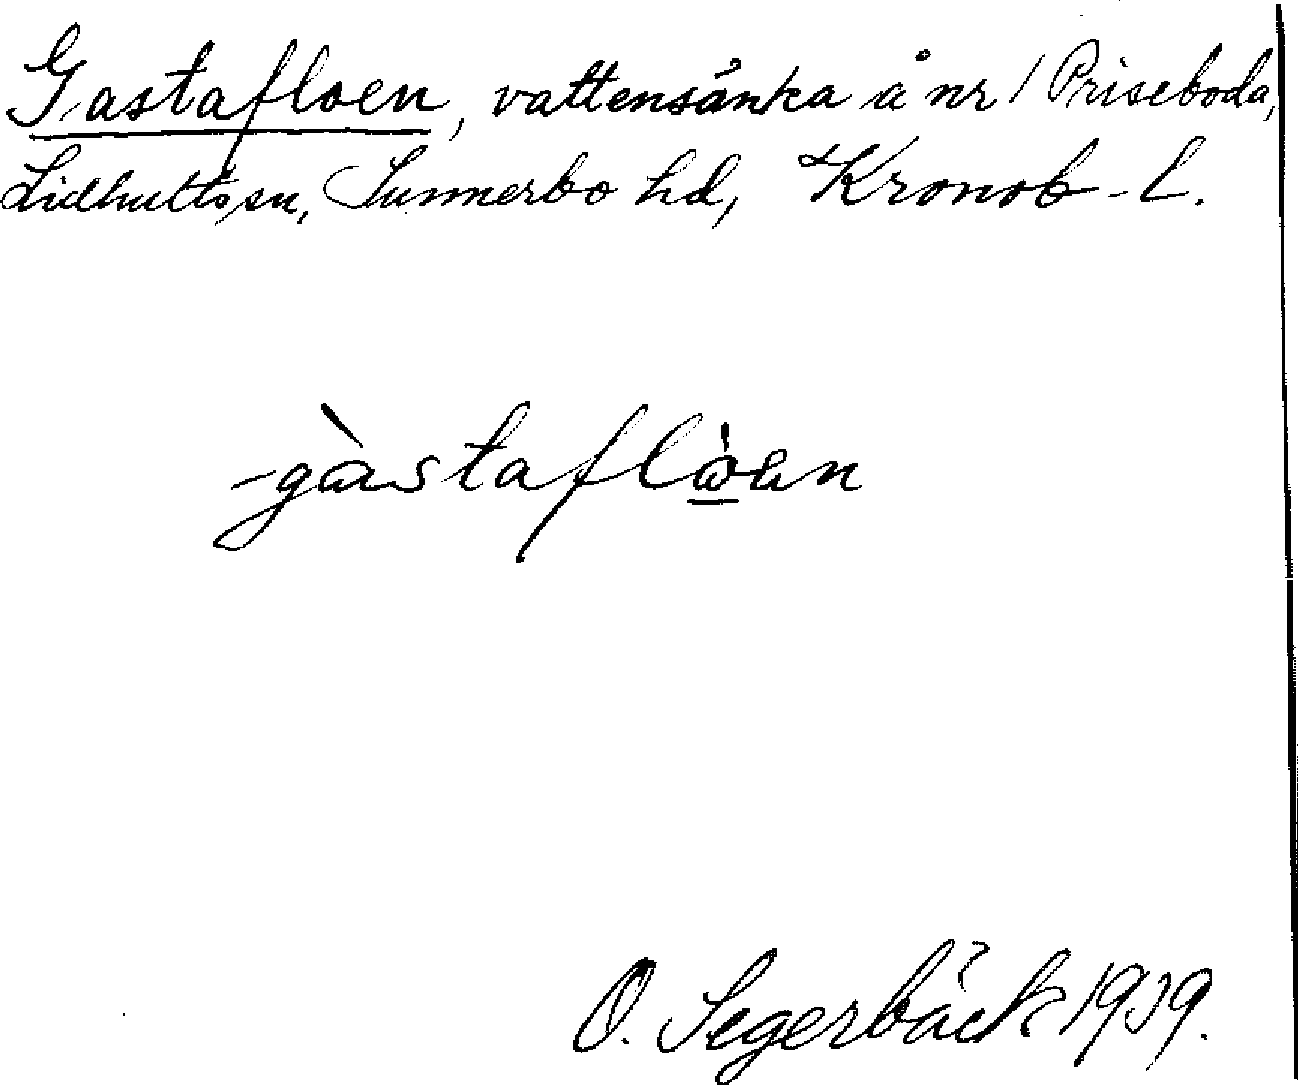 Gastafloen, vattensänka å nr 1 Priseboda,
Lidhults sn, Sunnerbo hd, Kronob. L.
gàstaflòen
O. Segerbäck 1939.